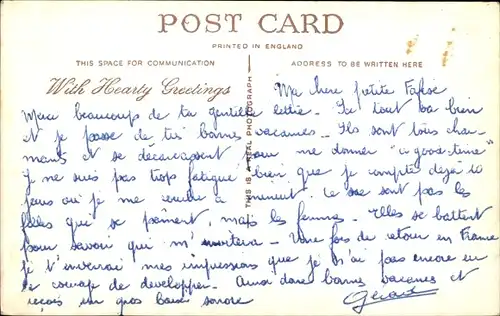 POST CARD
PRINTED IN ENGLAND
THIS SPACE FOR COMMUNICATION
ADDRESS TO BE WRITTEN HERE
With Hearty Greetings
THIS IS A REAL PHOTOGRAPH
Ma chere petite
Merci beaucoup de ta gentille lettre - Ici tout va bien
et je passe de très bonnes vacances - Ils sont tous char-
mants et se décarcassent pour me donner "a good time"
je ne suis pas trop fatigué bien que je compte déjà 10
jours où je me rends à Ce ne sont pas les
filles qui se pâment mais les femmes - Elles se battent
pour savoir qui m' - Une fois de retour en France
je t'enverrai mes impressions que je n'ai pas encore eu
le courage de developper - Amuse bonnes vacances et
reçois un gros baiser sonore
Gérard